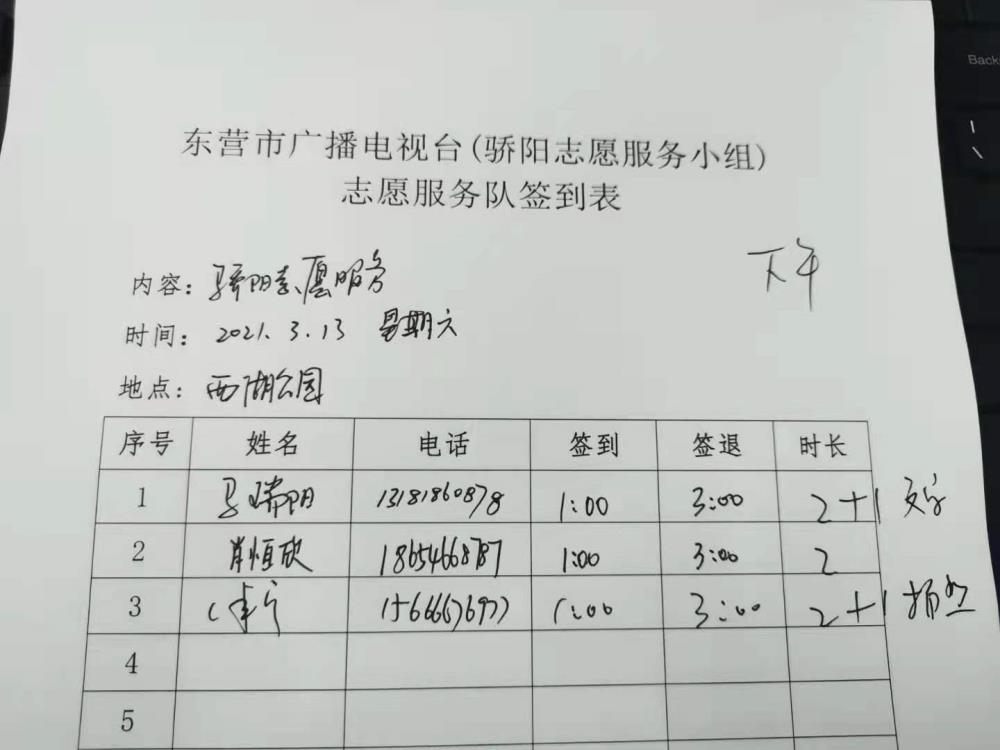 东营市广播电视台(骄阳志愿服务小组)
志愿服务队签到表
下午
内容：骄阳志愿服务
时间：2021.3.13 星期六
地点：西湖公园
序号 姓名 电话 签到 签退 时长
1 马瑞阳 13181860878 1:00 3:00 2+1 文字
2 肖恒欣 18654668787 1:00 3:00 2
3 1:00 3:00 2+1 拍照
4
5
Back